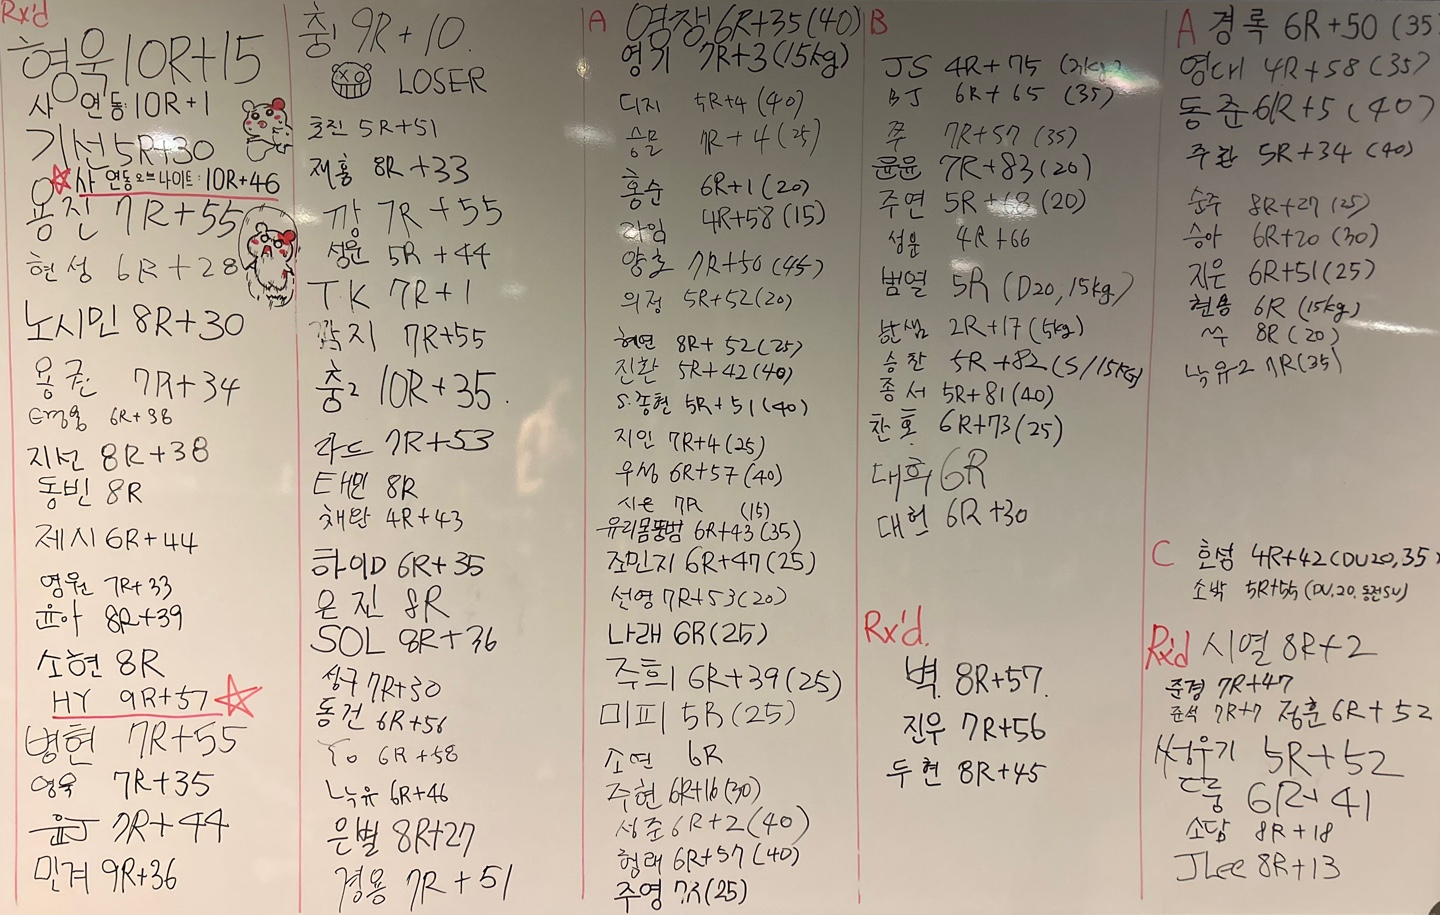 Rx'd
형욱 10R+15
사 연동: 10R+1
기선 5R+30
사 연동 오브 나이트: 10R+46
용진 7R+55
현성 6R+28
노시민 8R+30
용균 7R+34
6R+38
지선 8R+38
동빈 8R
제시 6R+44
영원 7R+33
윤아 8R+39
소현 8R
HY 9R+57
병현 7R+55
영욱 7R+35
윤J 7R+44
민겨 9R+36
충1 9R+10.
LOSER
호진 5R+51
재홍 8R+33
깡 7R+55
성윤 5R+44
TK 7R+1
깍지 7R+55
충2 10R+35.
라드 7R+53
태민 8R
채완 4R+43
하이D 6R+35
은진 8R
SOL 8R+36
성구 7R+30
동건 6R+56
Yo 6R+58
노유 6R+46
은별 8R+27
경용 7R+51
A 영쟁 6R+35(40)
영기 7R+3(15kg)
디지 5R+4(40)
승물 7R+4(25)
홍순 6R+1(20)
라임 4R+58(15)
양호 7R+50(45)
의정 5R+52(20)
혜연 8R+52(25)
진환 5R+42(40)
S.종현 5R+51(40)
지인 7R+4(25)
우성 6R+57(40)
시은 7R (15)
유리몸뚱범 6R+43(35)
조민지 6R+47(25)
선영 7R+53(20)
나래 6R(25)
주희 6R+39(25)
미피 5R(25)
소연 6R
주현 6R+16(30)
성준 6R+2(40)
형래 6R+57(40)
주영 7R(25)
B
JS 4R+75
BJ 6R+65 (35)
쭈 7R+57(35)
윤윤 7R+83(20)
주연 5R+68(20)
성운 4R+66
범열 5R(D20,15kg)
2R+17(5kg)
승찬 5R+82(S/15kg)
종서 5R+81(40)
찬호 6R+73(25)
대희 6R
대헌 6R+30
Rx'd.
벽. 8R+57.
진우 7R+56
두현 8R+45
A 경록 6R+50(35)
영대 4R+58(35)
동준 6R+5(40)
주환 5R+34(40)
순주 8R+27(25)
승아 6R+20(30)
지은 6R+51(25)
현용 6R(15kg)
쑤 8R(20)
노유2 7R(35)
C 호성 4R+42(DU20,35)
소박 5R+55(DU.20.동전SU)
Rx'd 시열 8R+2
준경 7R+47
준석 7R+7 정훈 6R+52
성우기 5R+52
6R+41
소담 8R+18
JLee 8R+13